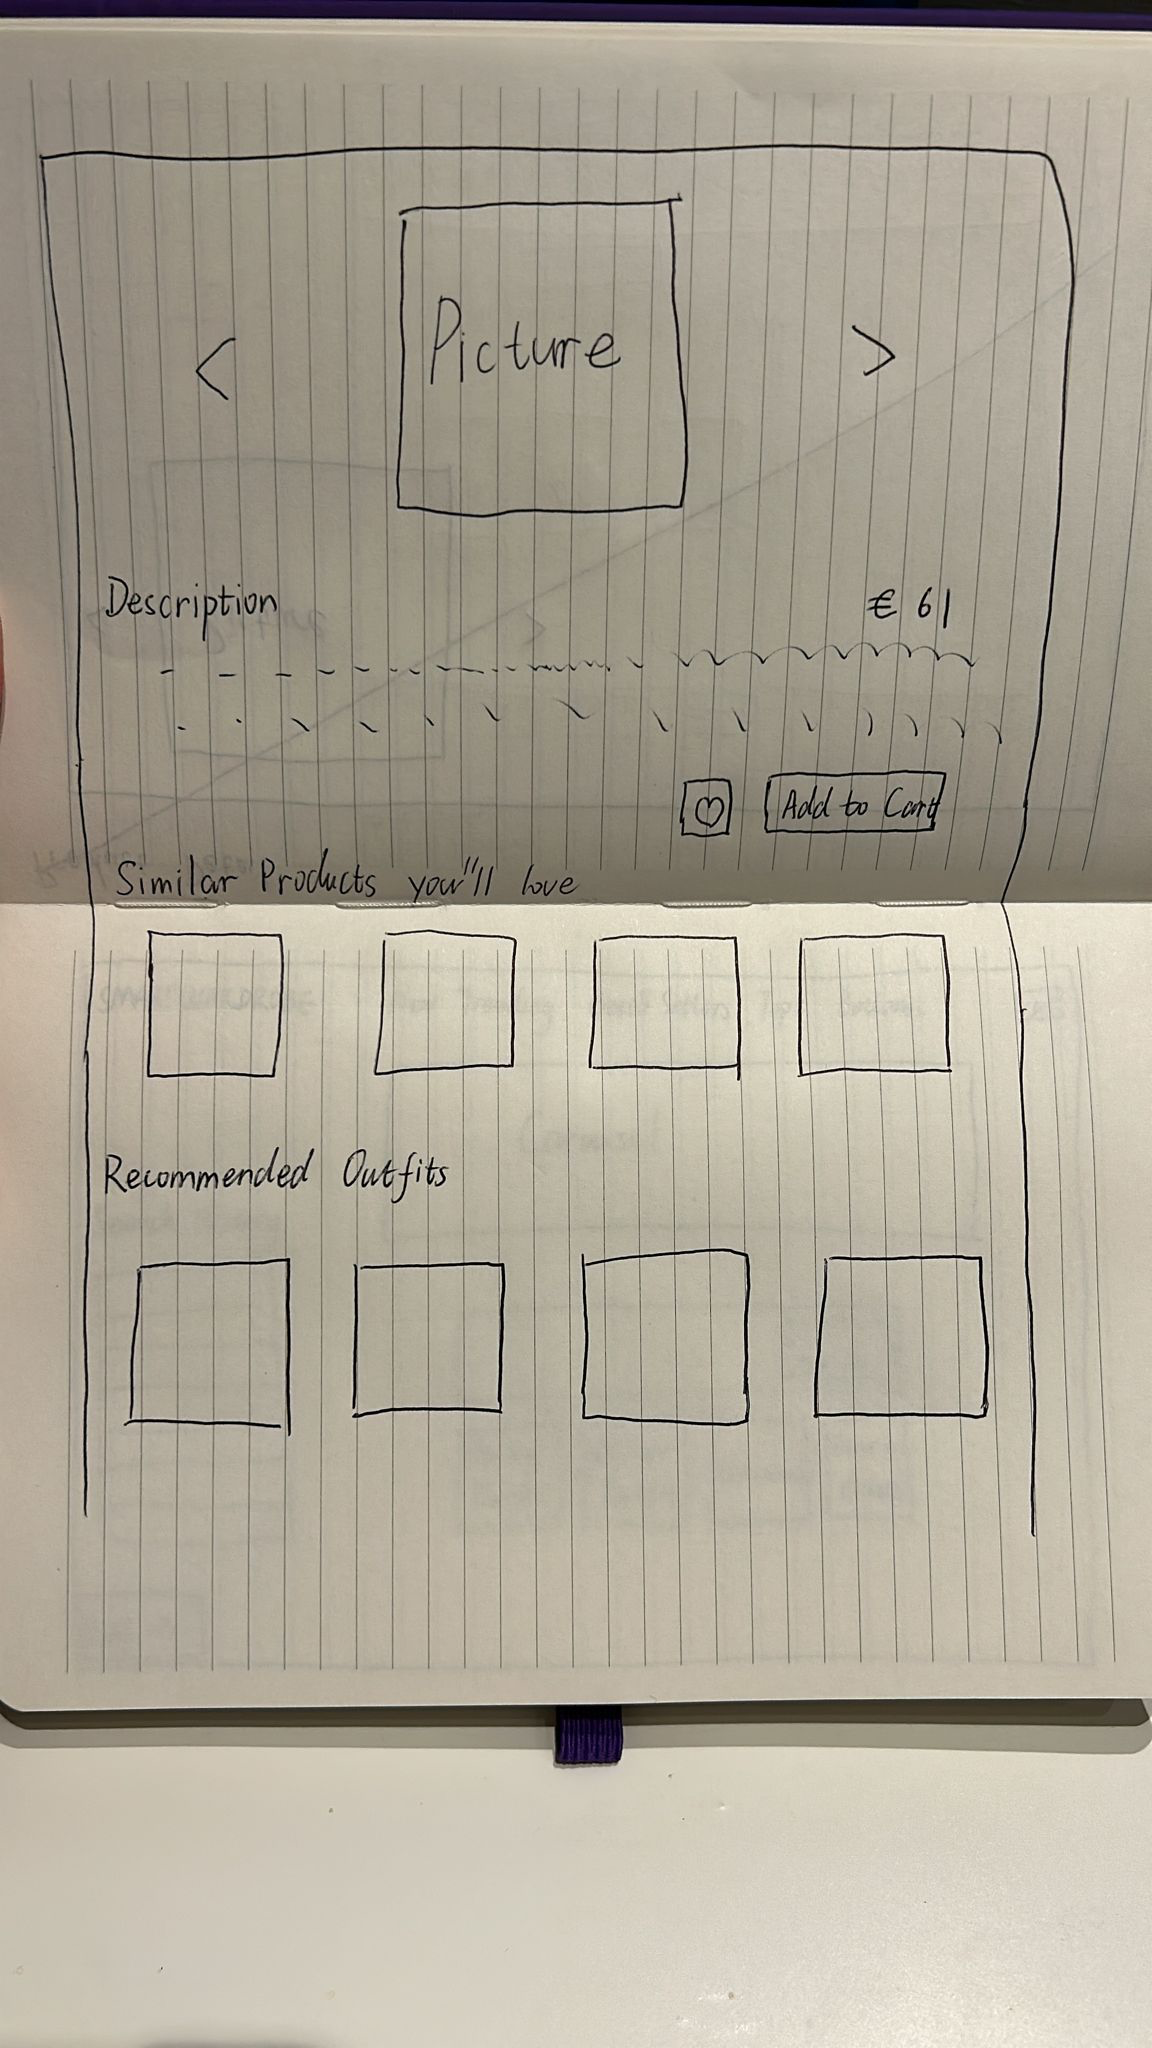 <
Picture
>
Description
€ 61
♡
Add to Cart
Similar Products you''ll love
Recommended Outfits